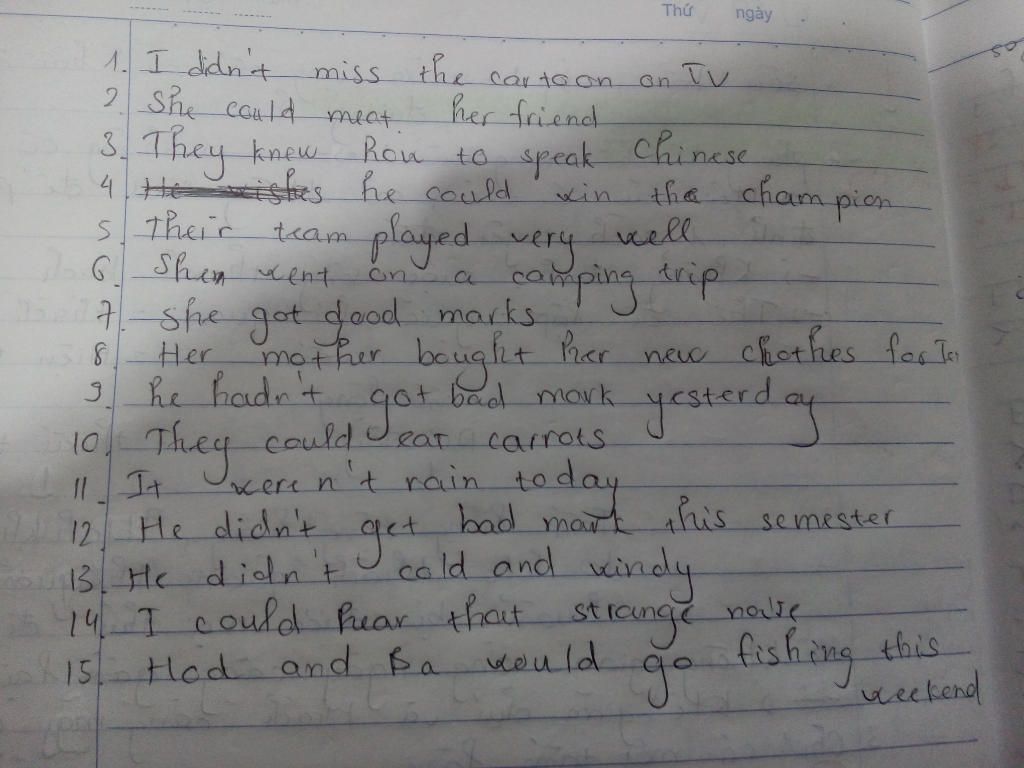 Thứ ngày
1. I didn't miss the cartoon on TV
2. She could meet her friend
3. They knew how to speak Chinese
4. he could win the champion
5. Their team played very well
6. Shen went on a camping trip
7. She got good marks
8. Her mother bought her new chothes for Tet
9. he hadn't got bad mark yesterday
10. They could eat carrots
11. It weren't rain today
12. He didn't get bad mark this semester
13. He didn't cold and windy
14. I could hear that strange noise
15. Hod and Ba would go fishing this
weekend